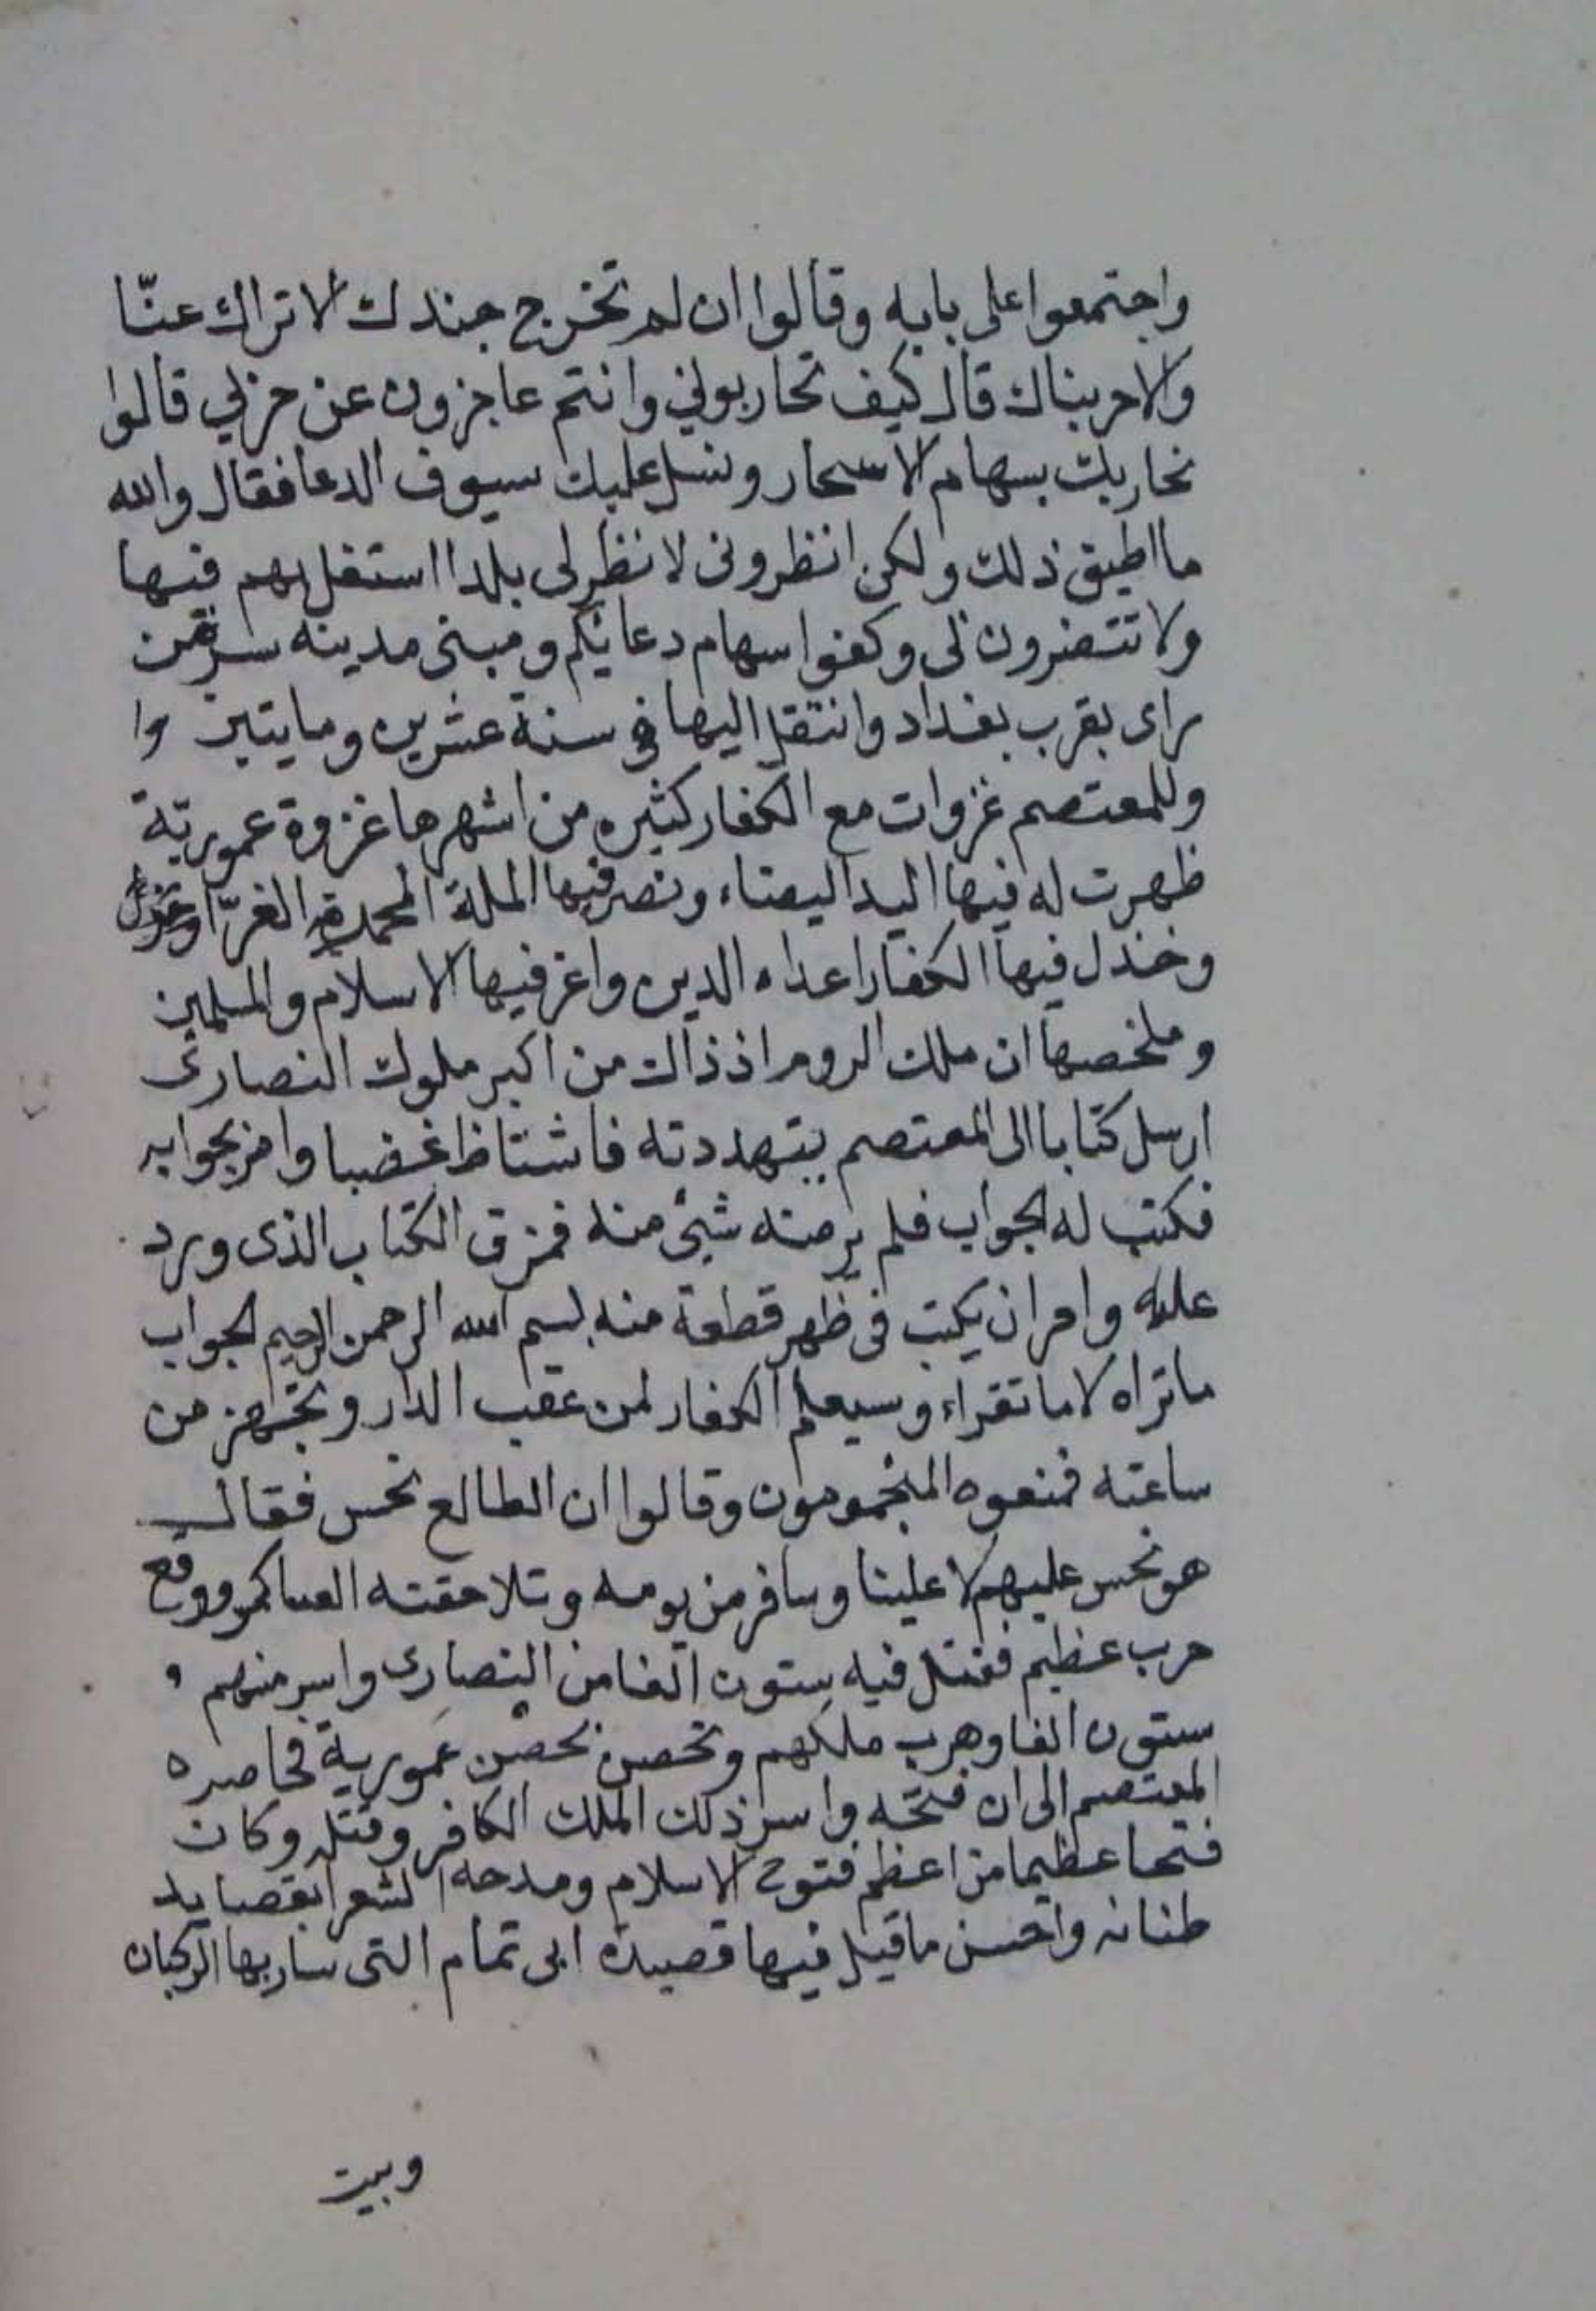 واجتمعوا على بابه وقالوا ان لم تخرج جندك الاتراك عنّا
والا حربناك قال كيف تحاربوني وانتم عاجزون عن حزبي قالوا
نحاربك بسهام الاسحار ونسل عليك سيوف الدعا فقال والله
ما اطيق ذلك ولكن انظروني لانظر لى بلدا استقل بهم فيها
ولا تتضرون لى وكفوا سهام دعائكم ومبنى مدينه سر من
راى بقرب بغداد وانتقل اليها في سنة عشرين ومايتين وا
وللمعتصم غزوات مع الكفار كثيره من اشهرها غزوة عمورية
ظهرت له فيها اليد البيضاء ونصر فيها الملة المحمدية الغرّا
وخذل فيها الكفار اعداء الدين واعز فيها الاسلام والمسلمين
وملخصها ان ملك الروم اذ ذاك من اكبر ملوك النصارى
ارسل كتابا الى المعتصم يتهددته فاشتاظ غضبا وامر بجوابه
فكتب له الجواب فلم يرضه شئ منه فمزق الكتاب الذى ورد
عليه وامر ان يكتب فى ظهر قطعة منه بسم الله الرحمن الرحيم الجواب
ما تراه لا ما تقراء وسيعلم الكفار لمن عقب الدار وتجهز من
ساعته فمنعوه المنجمومون وقالوا ان الطالع نحس فقال
هو نحس عليهم لا علينا وسافر من يومه وتلاحقته العساكر ووقع
حرب عظيم فقتل فيه ستون الفا من النصارى واسر منهم و
ستون الفا وهرب ملكهم وتحصن بحصن عمورية فحاصره
المعتصم الى ان فتحه واسر ذلك الملك الكافر وقتل وكان
فتحا عظيما من اعظم فتوح الاسلام ومدحه الشعرا بقصايد
طنانه واحسن ما قيل فيها قصيدة ابى تمام التى سار بها الركبان
وبيت